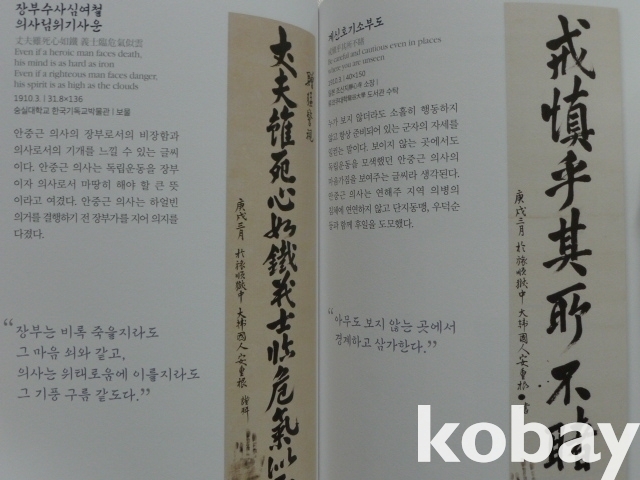 장부수사심여철
의사임위기사운
丈夫雖死心如鐵 義士臨危氣似雲
Even if a heroic man faces death,
his mind is as hard as iron
Even if a righteous man faces danger,
his spirit is as high as the clouds
1910.3. | 31.8×136
숭실대학교 한국기독교박물관 | 보물
안중근 의사의 장부로서의 비장함과
의사로서의 기개를 느낄 수 있는 글씨
이다. 안중근 의사는 독립운동을 장부
이자 의사로서 마땅히 해야 할 큰 뜻
이라고 여겼다. 안중근 의사는 하얼빈
의거를 결행하기 전 장부가를 지어 의지를
다졌다.
“장부는 비록 죽을지라도
그 마음 쇠와 같고,
의사는 위태로움에 이를지라도
그 기풍 구름 같도다.”
丈夫雖死心如鐵義士臨危氣似
庚戌三月 於旅順獄中 大韓國人 安重根 謹拜
계신호기소부도
Be careful and cautious even in places
where you are unseen
1910.3. | 40×150
누가 보지 않더라도 소홀히 행동하지
않고 항상 준비되어 있는 군자의 자세를
일컫는 말이다. 보이지 않는 곳에서도
독립운동을 모색했던 안중근 의사의
마음가짐을 보여주는 글씨라 생각된다.
안중근 의사는 연해주 지역 의병의
침체에 연연하지 않고 단지동맹, 우덕순
등과 함께 후일을 도모했다.
“아무도 보지 않는 곳에서
경계하고 삼가한다.”
戒愼乎其所不睹
庚戌三月 於旅順獄中 大韓國人 安重根 書
kobay